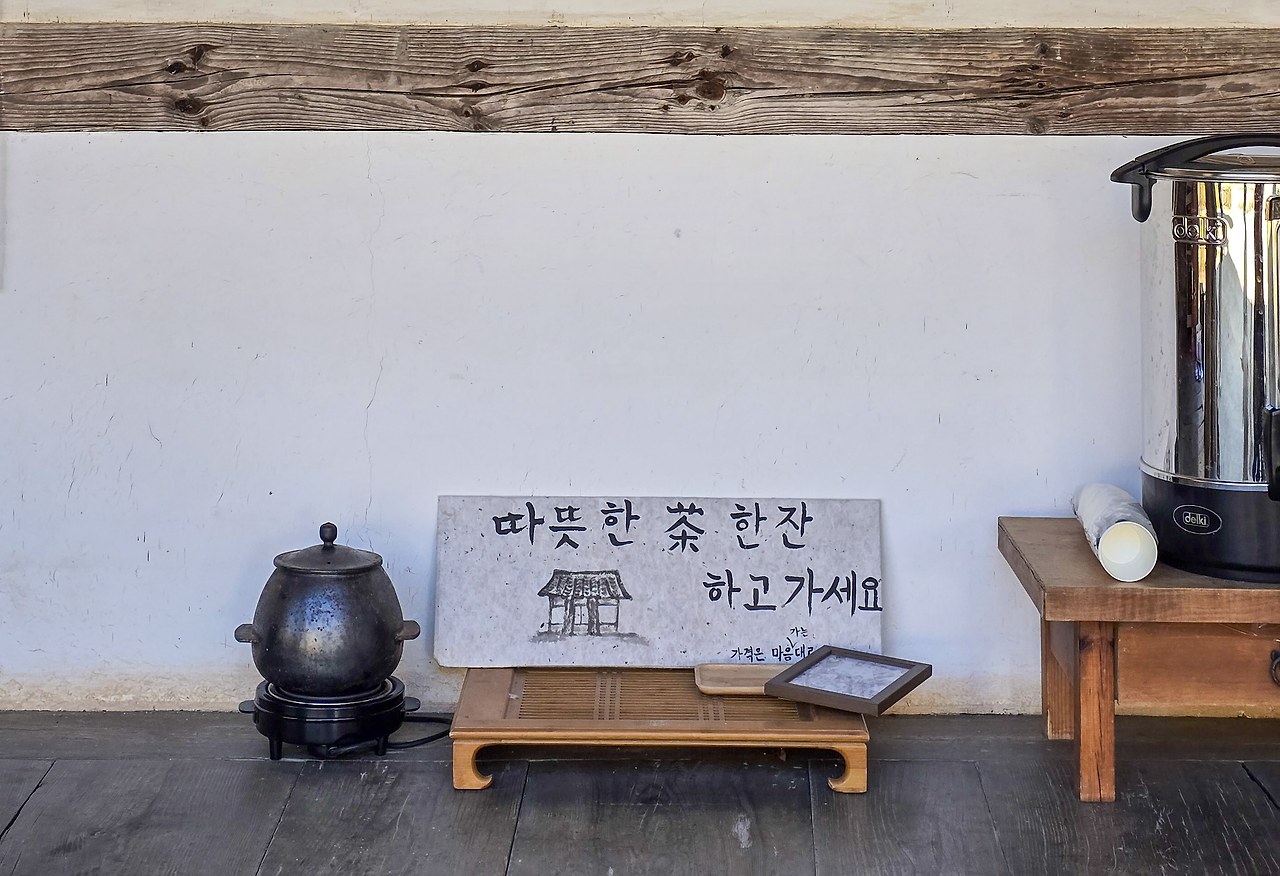 따뜻한 茶 한잔
하고 가세요
가는
가격은 마음대로
delki